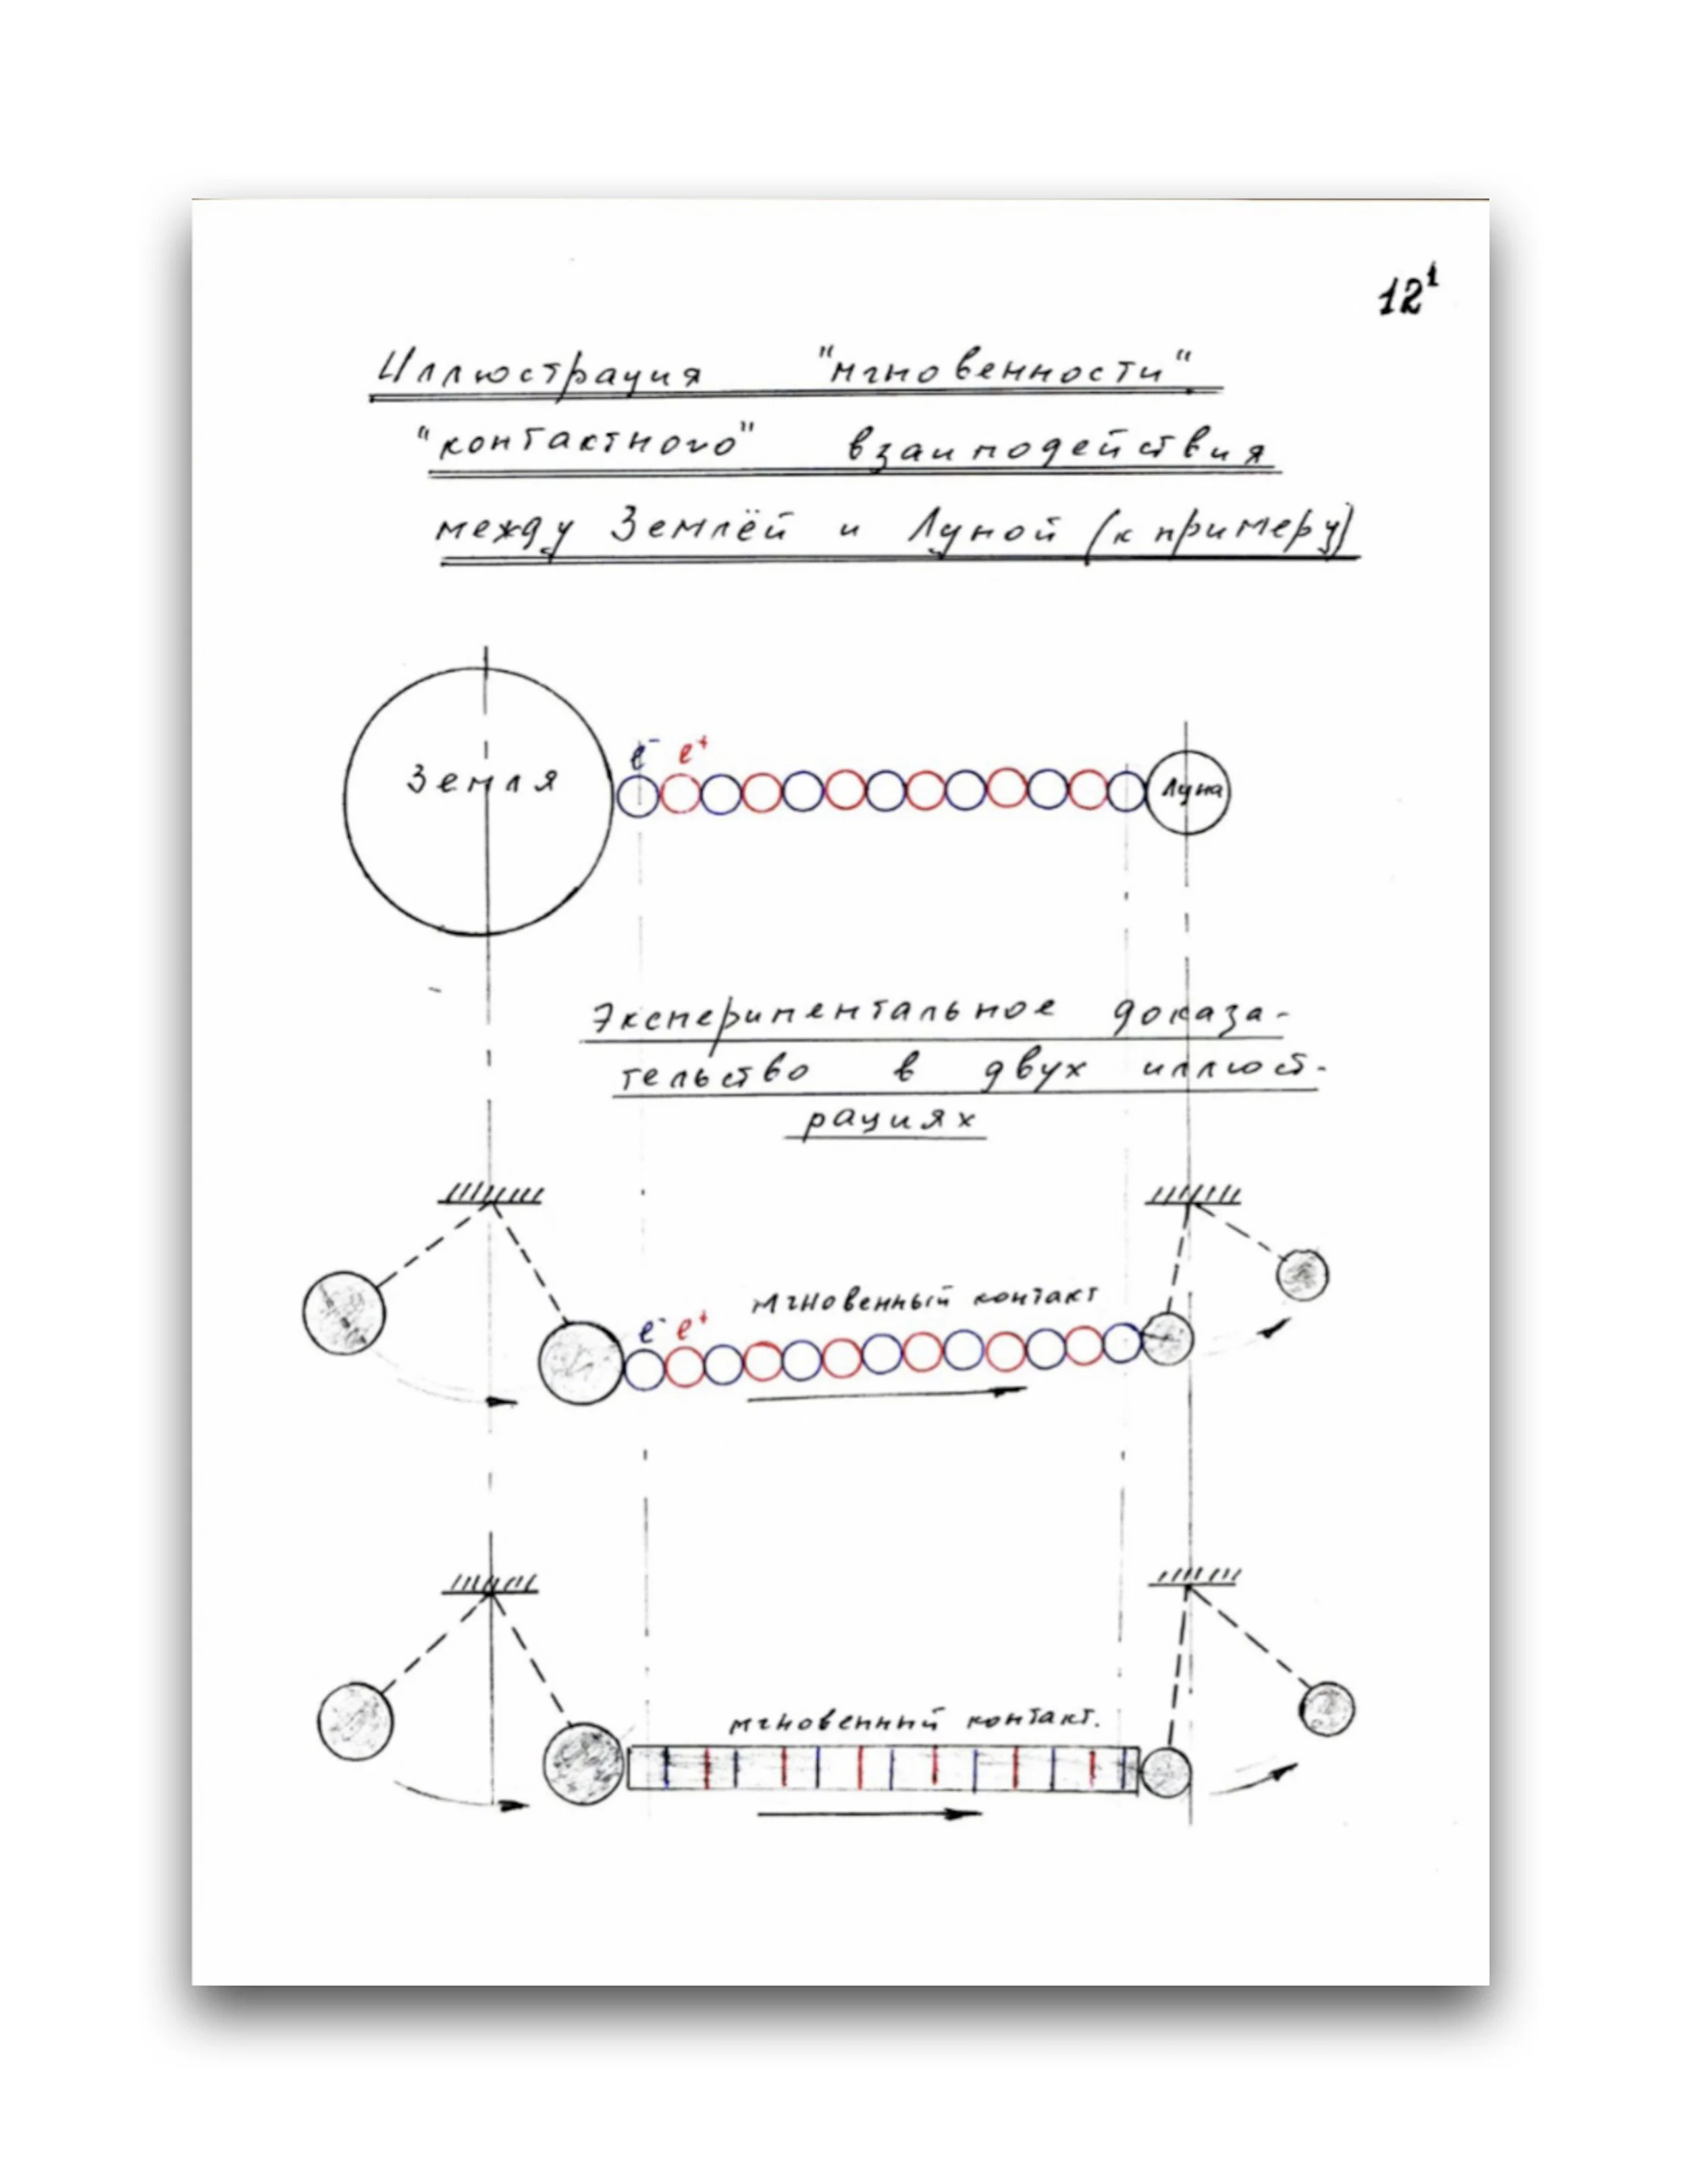 12¹
Иллюстрация "мгновенности"
"контактного" взаимодействия
между Землёй и Луной (к примеру)
e⁻ e⁺
Земля
Луна
Экспериментальное доказа-
тельство в двух иллюст-
рациях
мгновенный контакт
e⁻ e⁺
мгновенный контакт.